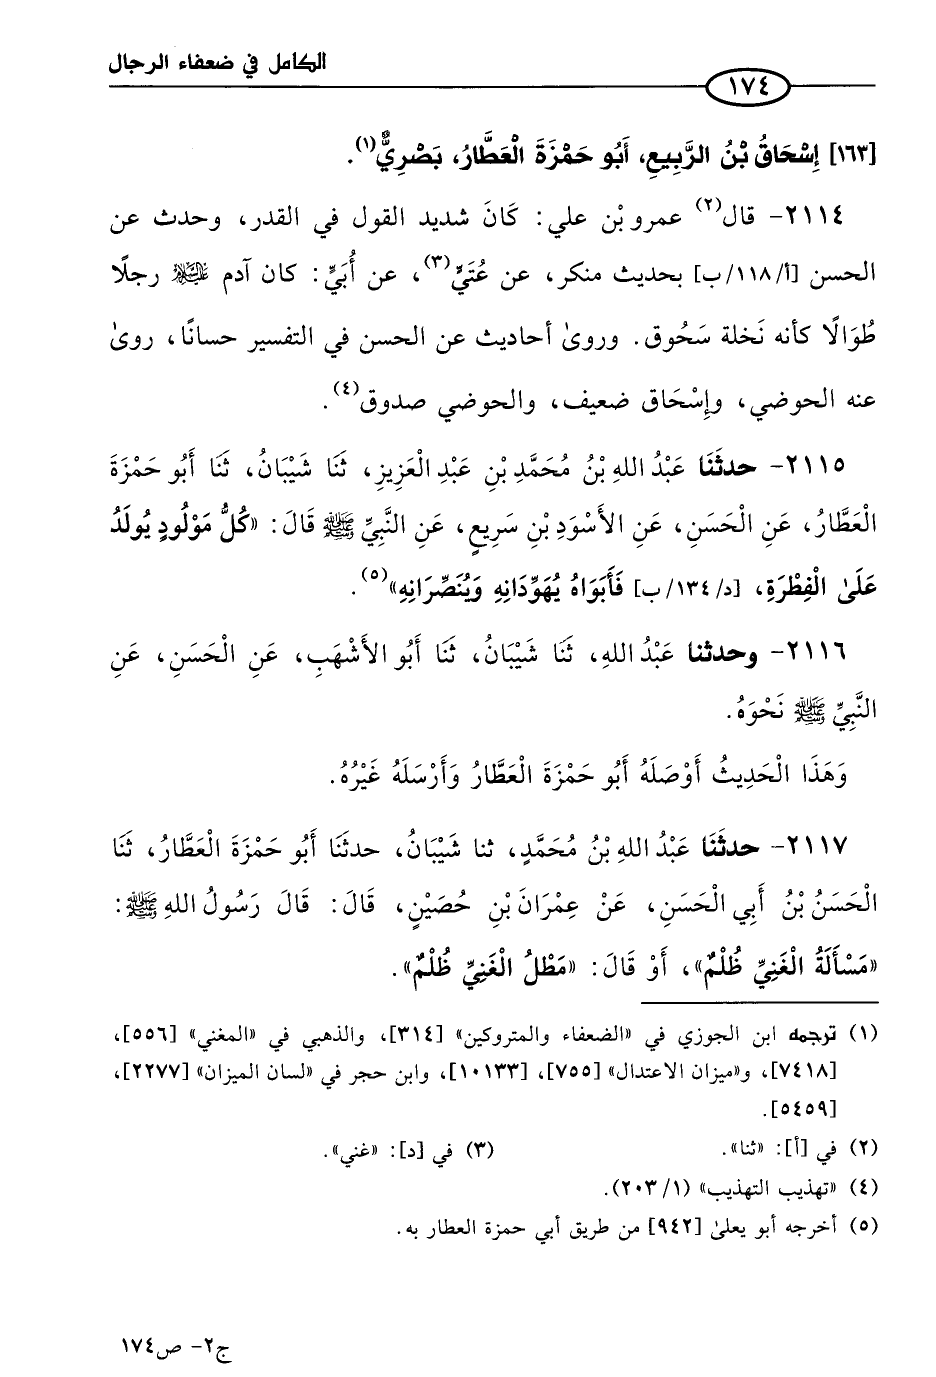 الكامل في ضعفاء الرجال
١٧٤
[١٦٣] إِسْحَاقُ بْنُ الرَّبِيعِ، أَبُو حَمْزَةَ الْعَطَّارُ، بَصْرِيٌّ(١).
٢١١٤- قال(٢) عمرو بْن علي: كَانَ شديد القول في القدر، وحدث عن
الحسن [أ/١١٨/ب] بحديث منكر، عن عُتَيٍّ(٣)، عن أُبَيٍّ: كان آدم عليه السلام رجلًا
طُوَالًا كأنه نَخلة سَحُوق. وروىٰ أحاديث عن الحسن في التفسير حسانًا، روىٰ
عنه الحوضي، وإِسْحَاق ضعيف، والحوضي صدوق(٤).
٢١١٥- حدثَنَا عَبْدُ اللهِ بْنُ مُحَمَّدِ بْنِ عَبْدِ الْعَزِيزِ، ثَنَا شَيْبَانُ، ثَنَا أَبُو حَمْزَةَ
الْعَطَّارُ، عَنِ الْحَسَنِ، عَنِ الأَسْوَدِ بْنِ سَرِيعٍ، عَنِ النَّبِيِّ ﷺ قَالَ: «كُلُّ مَوْلُودٍ يُولَدُ
عَلَىٰ الْفِطْرَةِ، [د/١٣٤/ب] فَأَبَوَاهُ يُهَوِّدَانِهِ وَيُنَصِّرَانِهِ»(٥).
٢١١٦- وحدثنا عَبْدُ اللهِ، ثَنَا شَيْبَانُ، ثَنَا أَبُو الأَشْهَبِ، عَنِ الْحَسَنِ، عَنِ
النَّبِيِّ ﷺ نَحْوَهُ.
وَهَذَا الْحَدِيثُ أَوْصَلَهُ أَبُو حَمْزَةَ الْعَطَّارُ وَأَرْسَلَهُ غَيْرُهُ.
٢١١٧- حدثَنَا عَبْدُ اللهِ بْنُ مُحَمَّدٍ، ثنا شَيْبَانُ، حدثنَا أَبُو حَمْزَةَ الْعَطَّارُ، ثَنَا
الْحَسَنُ بْنُ أَبِي الْحَسَنِ، عَنْ عِمْرَانَ بْنِ حُصَيْنٍ، قَالَ: قَالَ رَسُولُ اللهِ ﷺ:
«مَسْأَلَةُ الْغَنِيِّ ظُلْمٌ»، أَوْ قَالَ: «مَطْلُ الْغَنِيِّ ظُلْمٌ».
(١) ترجمه ابن الجوزي في «الضعفاء والمتروكين» [٣١٤]، والذهبي في «المغني» [٥٥٦]،
[٧٤١٨]، و«ميزان الاعتدال» [٧٥٥]، [١٠١٣٣]، وابن حجر في «لسان الميزان» [٢٢٧٧]،
[٥٤٥٩].
(٢) في [أ]: «ثنا». (٣) في [د]: «غني».
(٤) «تهذيب التهذيب» (١/ ٢٠٣).
(٥) أخرجه أبو يعلىٰ [٩٤٢] من طريق أبي حمزة العطار به.
ج٢- ص١٧٤